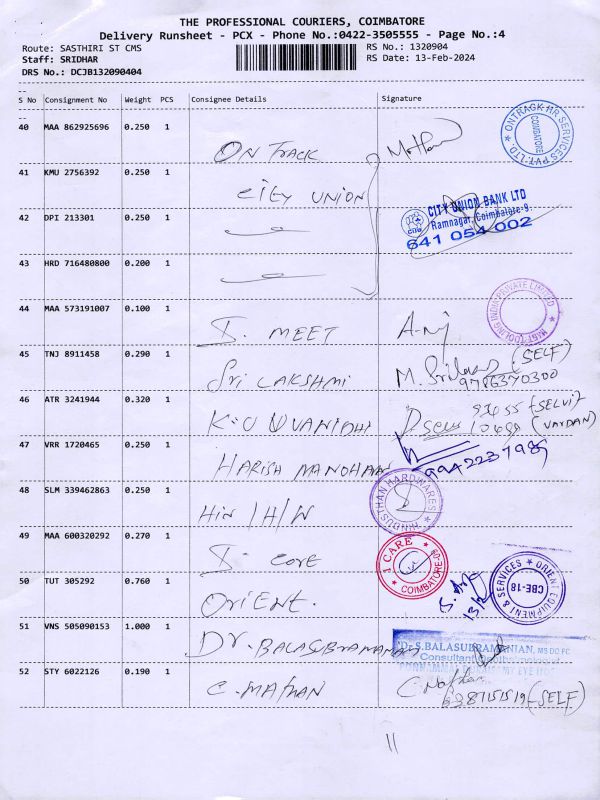 THE PROFESSIONAL COURIERS, COIMBATORE
Delivery Runsheet - PCX - Phone No.:0422-3505555 - Page No.:4
Route: SASTHIRI ST CMS RS No.: 1320904
Staff: SRIDHAR RS Date: 13-Feb-2024
DRS No.: DCJB132090404
S No Consignment No Weight PCS Consignee Details Signature
40 MAA 862925696 0.250 1
ON TRACK
ONTRACK HR SERVICES PVT. LTD. COIMBATORE
41 KMU 2756392 0.250 1
CITY UNION
42 DPI 213301 0.250 1
CITY UNION BANK LTD
Ramnagar, Coimbatore-9.
641 054 002
43 HRD 716480800 0.200 1
44 MAA 573191007 0.100 1
I. MEET
INDIA PRIVATE LIMITED
45 TNJ 8911458 0.290 1
Sri LAKSHMI
(SELF)
46 ATR 3241944 0.320 1
(SELVI)
(VARDAN)
47 VRR 1720465 0.250 1
HARISH MANOHAR
9942237989
48 SLM 339462863 0.250 1
Hin / H/W
HINDUSTHAN HARDWARES
49 MAA 600320292 0.270 1
I- CORE
I CARE COIMBATORE-09
50 TUT 305292 0.760 1
ORIENT.
ORIENT EQUIPMENT & SERVICES CBE-18
51 VNS 505090153 1.000 1
Dr. BALASUBRAMANIAM
Dr.S.BALASUBRAMANIAN, MS DO FC
Consultant Ophthalmologist
52 STY 6022126 0.190 1
C. MATHAN
(SELF)
11